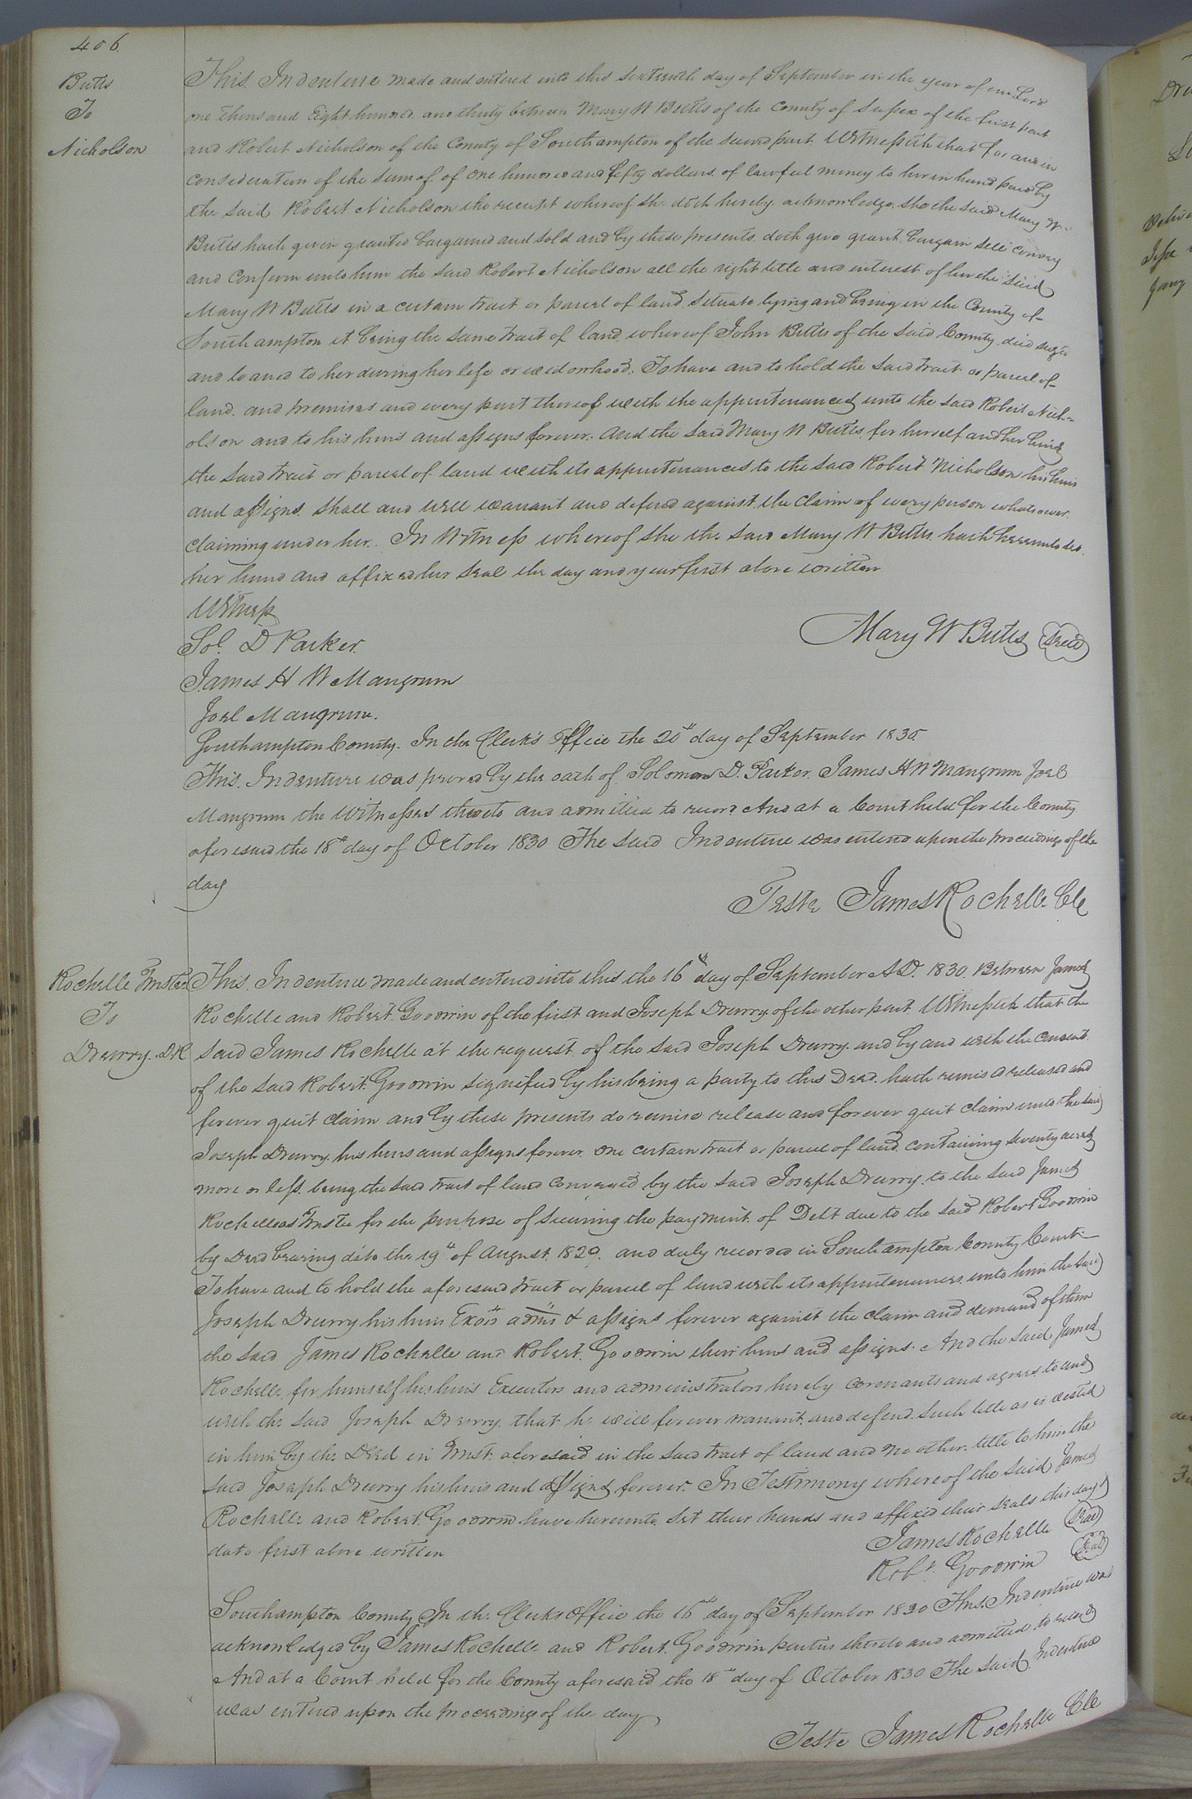 406
Butts
To
Nicholson
This Indenture made and entered into this sixteenth day of September in the year of our Lord
one thousand Eight hundred and thirty between Mary W Butts of the County of Sussex of the first part
and Robert Nicholson of the County of Southampton of the second part Witnesseth that for and in
consideration of the sum of of one hundred and fifty dollars of lawful money to her in hand paid by
the said Robert Nicholson the receipt whereof she doth hereby acknowledge she the said Mary W
Butts hath given granted bargained and sold and by these presents doth give grant bargain sell convey
and confirm unto him the said Robert Nicholson all the right title and interest of her the said
Mary W Butts in a certain tract or parcel of land situate lying and being in the County of
Southampton it being the same tract of land whereof John Butts of the said County died
and loaned to her during her life or widowhood. To have and to hold the said tract or parcel of
land and premises and every part thereof with the appurtenances unto the said Robert Nich=
olson and to his heirs and assigns forever. And the said Mary W Butts for herself and her heirs
the said tract or parcel of land with its appurtenances to the said Robert Nicholson his heirs
and assigns shall and will warrant and defend against the claim of every person whatsoever
claiming under her. In Witness whereof she the said Mary W Butts hath hereunto set
her hand and affixed her seal the day and year first above written
Witness
Sol. D Parker
Mary W Butts Seal
James H W Mangrum
Joel Mangrum.
Southampton County. In the Clerk's Office the 20th day of September 1830
This Indenture was proved by the oath of Solomon D. Parker, James H W Mangrum Joel
Mangrum the Witnesses thereto and admitted to record And at a Court held for the County
aforesaid the 18th day of October 1830 The said Indenture was entered upon the proceedings of the
day
Teste James Rochelle Clk
Rochelle Trustee
To
Drurry. D.R
This Indenture made and entered into this the 16th day of September A.D. 1830. Between James
Rochelle and Robert Goodwin of the first and Joseph Drurry of the other part Witnesseth that the
said James Rochelle at the request of the said Joseph Drurry and by and with the consent
of the said Robert Goodwin signified by his being a party to this Deed. hath remised released and
forever quit claim and by these presents do remise release and forever quit claim unto the said
Joseph Drurry his heirs and assigns forever one certain tract or parcel of land containing seventy acres
more or less. being the said tract of land conveyed by the said Joseph Drurry to the said James
Rochelle as Trustee for the purpose of securing the payment of Debt due to the said Robert Goodwin
by Deed bearing date the 19th of August 1829. and duly recorded in Southampton County Court
To have and to hold the aforesaid tract or parcel of land with its appurtenances unto him the said
Joseph Drurry his heirs Exors adms & assigns forever against the claim and demand of them
the said James Rochelle and Robert Goodwin their heirs and assigns. And the said James
Rochelle for himself his heirs Executors and administrators hereby covenants and agrees to and
with the said Joseph Drurry that he will forever warrant and defend such title as is vested
in him by the Deed in Trust aforesaid in the said tract of land and no other title to him the
said Joseph Drurry his heirs and assigns forever. In Testimony whereof the said James
Rochelle and Robert Goodwin have hereunto set their hands and affixed their seals this day &
date first above written
James Rochelle Seal
Robt. Goodwin Seal
Southampton County In the Clerks Office the 16th day of September 1830 This Indenture was
acknowledged by James Rochelle and Robert Goodwin parties thereto and admitted to record
And at a Court held for the County aforesaid the 18th day of October 1830 The said Indenture
was entered upon the proceedings of the day
Teste James Rochelle Clk